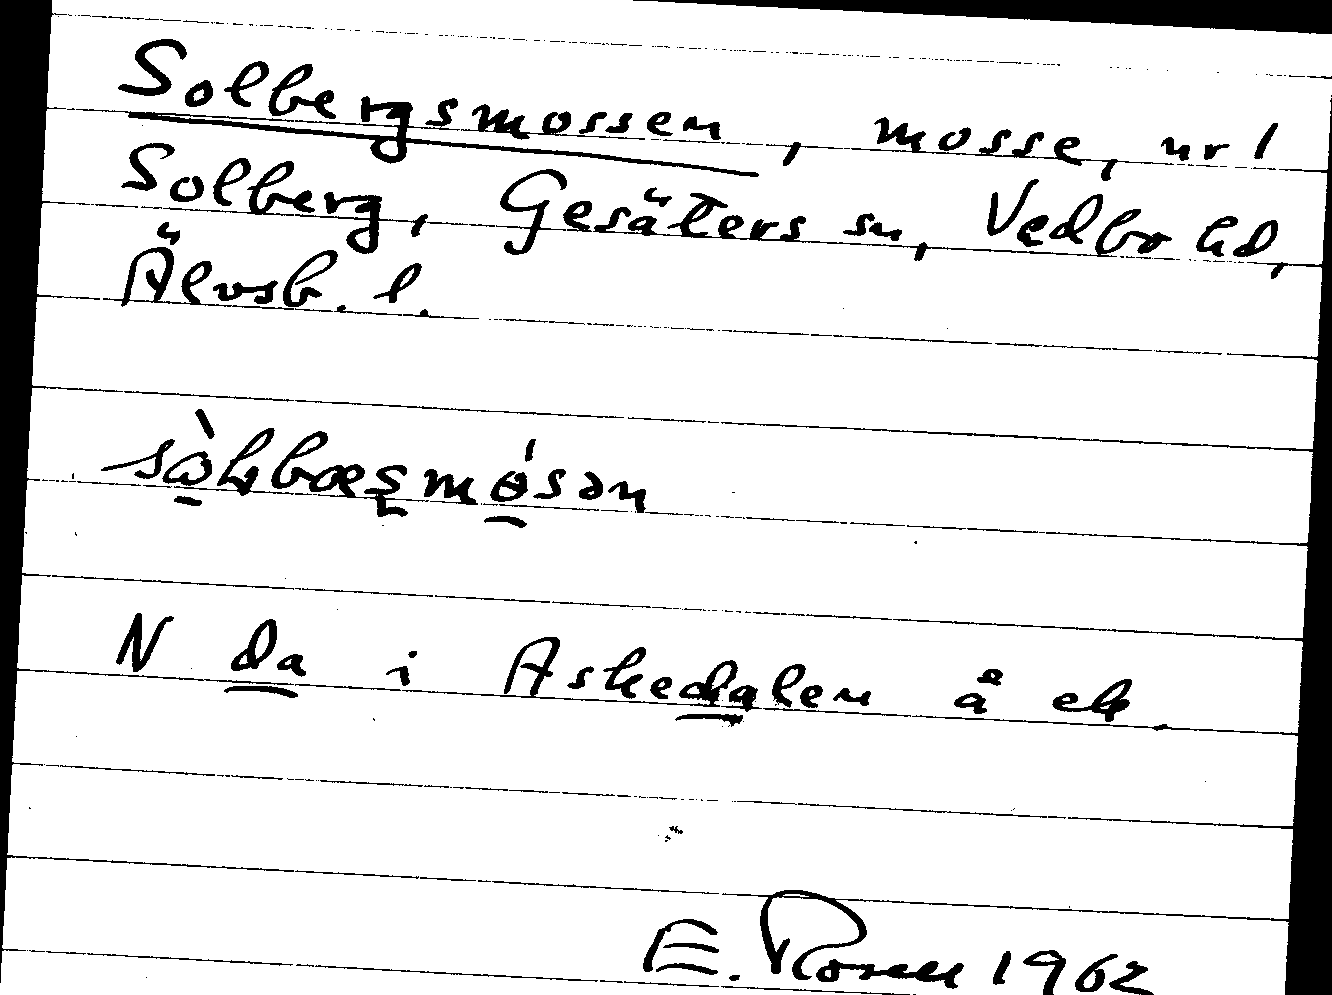 Solbergsmossen, mosse, nr 1
Solberg, Gesäters sn, Vedbo hd,
Älvsb. l.
N da i Askedalen å ek.
E. Rosell 1962